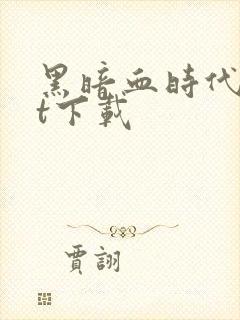 黑暗血時代
t下載
賈詡